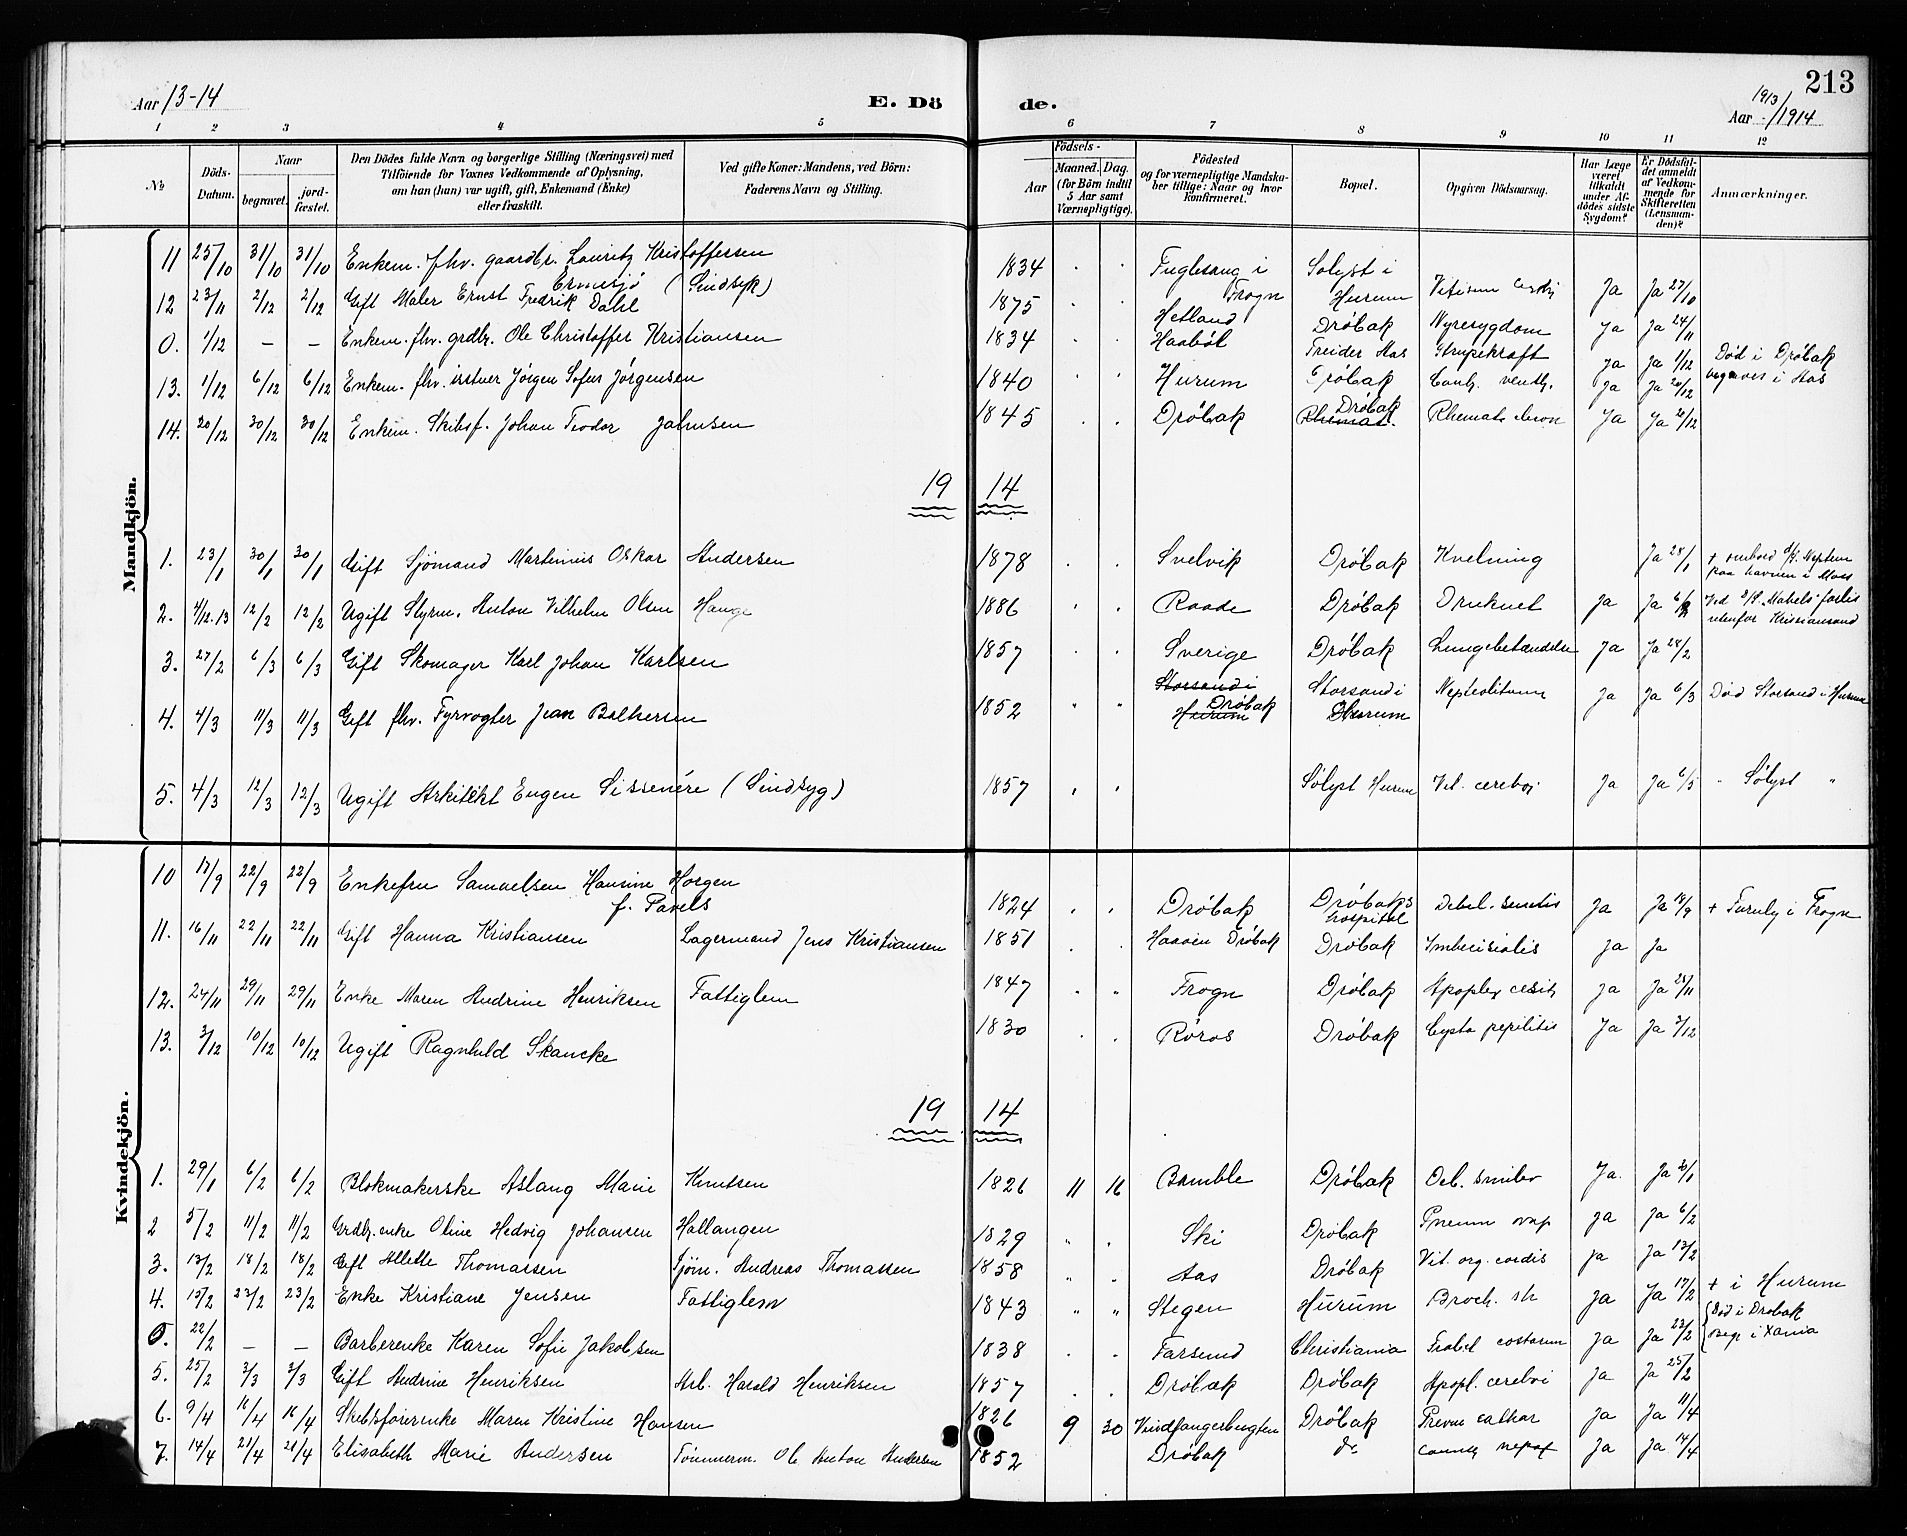 213
Aar 13-14
E. Dö de.
Aar 1913/1914
1 2 3 4 5 6 7 8 9 10 11 12
No
Döds-Datum.
Naar
begravet.
jord-fæstet.
Den Dödes fulde Navn og borgerlige Stilling (Næringsvei) med
Tilföiende for Voxnes Vedkommende af Oplysning,
om han (hun) var ugift, gift, Enkemand (Enke)
eller fraskilt.
Ved gifte Koner: Mandens, ved Börn:
Faderens Navn og Stilling.
Födsels-
Aar
Maaned. Dag.
(for Börn indtil
5 Aar samt
Værnepligtige).
Födested
og for værnepligtige Mandska-
ber tillige: Naar og hvor
konfirmeret.
Bopæl.
Opgiven Dödsaarsag.
Har Læge
været
tilkaldt
under Af-
dödes sidste
Sygdom?
Er Dödsfal-
det anmeldt
af Vedkom-
mende for
Skifteretten
(Lensman-
den)?
Anmærkninger.
Mandkjön.
11 25/10 31/10 31/10 Enkem. fhv. gaardbr. Lauritz Kristoffersen Ermesjö (Sindsyk) 1834 Fuglesang i Frogn Solyst i Hurum Vitium Ja Ja 27/10
12 23/11 2/12 2/12 Gift Maler Ernst Fredrik Dahl 1875 Hetland Dröbak Nyresygdom Ja Ja 24/11
0. 1/12 — — Enkem. fhv. grdbr. Ole Christoffer Kristiansen 1834 Haabøl Treider Aas Strupekraft Ja Ja 1/12 Død i Drøbak begraves i Aas
13. 1/12 6/12 6/12 Enkem. fhv. Jørgen Sofus Jørgensen 1840 Hurum Drøbak Ja Ja 20/12
14. 20/12 30/12 30/12 Enkem. Skibsf. Johan Teodor Jahnsen 1845 Drøbak Rhemat. Drøbak Rhemat. Ja Ja
19 14
1. 23/1 30/1 30/1 Gift Sjømand Martinius Oskar Andersen 1878 Svelvik Drøbak Kvelning Ja 28/1 + ombord d/s. Neptun paa havnen i Moss
2. 4/12.13 12/2 12/2 Ugift Styrm. Anton Vilhelm Olsen Hauge 1886 Raade Drøbak Druknet Ja Ja 6/2 Ved S/S. Mabels forlis utenfor Kristiansand
3. 27/2 6/3 6/3 Gift Skomager Karl Johan Karlsen 1857 Sverige Drøbak Lungebetændelse Ja Ja 28/2
4. 4/3 11/3 11/3 Gift fhv. Fyrvogter Jean Balkersen 1852 Storsand i Hurum Drøbak Storsand i Hurum Ja Ja 6/3 Død Storsand i Hurum
5. 4/3 12/3 12/3 Ugift Arkitekt Eugen Sissenére (Sindsyg) 1857 Sølyst Hurum Vit. cerebri Ja Ja 6/5 " Sølyst "
Kvindekjön.
10 17/9 22/9 22/9 Enkefru Samuelsen Hansine Horgen f. Pavels 1824 Drøbak Drøbaks hospital Debil. senilis Ja Ja 18/9 + Furuly i Frogn
11. 16/11 22/11 22/11 Gift Hanna Kristiansen Lagermand Jens Kristiansen 1851 Haaøen Drøbak Drøbak Ja Ja
12. 24/11 29/11 29/11 Enke Maren Andrine Henriksen Fattiglem 1847 Frogn Drøbak Apoplex Ja Ja 25/11
13. 3/12 10/12 10/12 Ugift Ragnhild Skancke 1830 Røros Drøbak Ja Ja 3/12
19 14
1. 29/1 6/2 6/2 Blokmakerske Aslaug Marie Knutsen 1826 11 16 Bamble Drøbak Ja. Ja 30/1
2 5/2 11/2 11/2 Grdbr.enke Oline Hedvig Johansen Hallangen 1829 Ski Drøbak Pneum Ja Ja 6/2
3. 13/2 18/2 18/2 Gift Allette Thomassen Sjøm. Andreas Thomassen 1858 Aas Drøbak Vit. org. cordis Ja Ja 13/2
4. 15/2 23/2 23/2 Enke Kristiane Jensen Fattiglem 1843 Stegen Hurum Broch. Ja Ja 17/2 + i Hurum
0. 22/2 — — Barberenke Karen Sofie Jakobsen 1838 Farsund Christiania costarum Ja Ja 23/2 Død i Drøbak begr. i Xania
5. 25/2 3/3 3/3 Gift Andrine Henriksen Arb. Harald Henriksen 1857 Drøbak Drøbak Apopl. cerebri Ja Ja 25/2
6. 9/4 16/4 16/4 Skibsførerenke Maren Kristine Hansen 1826 9 30 Vindfangerbugten Drøbak Ja Ja 11/4
7. 14/4 21/4 21/4 Elisabeth Marie Andersen Tømmerm. Ole Anton Andersen 1852 Drøbak do Ja Ja 14/4